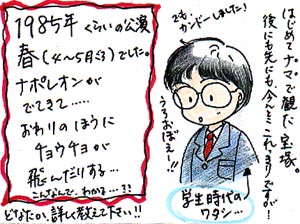 1985年くらいの公演
春(4〜5月ごろ)でした。
ナポレオンが
でてきて……
おわりのほうに
チョウチョが
飛んだりする…
こんなんで、わかる…??
どなたか、詳しく教えて下さい!!
はじめてナマで観た宝塚。
後にも先にも、今んとここれっきりですが!
でもカンドーしました!
うろおぼえー!!
学生時代の
ワタシ…